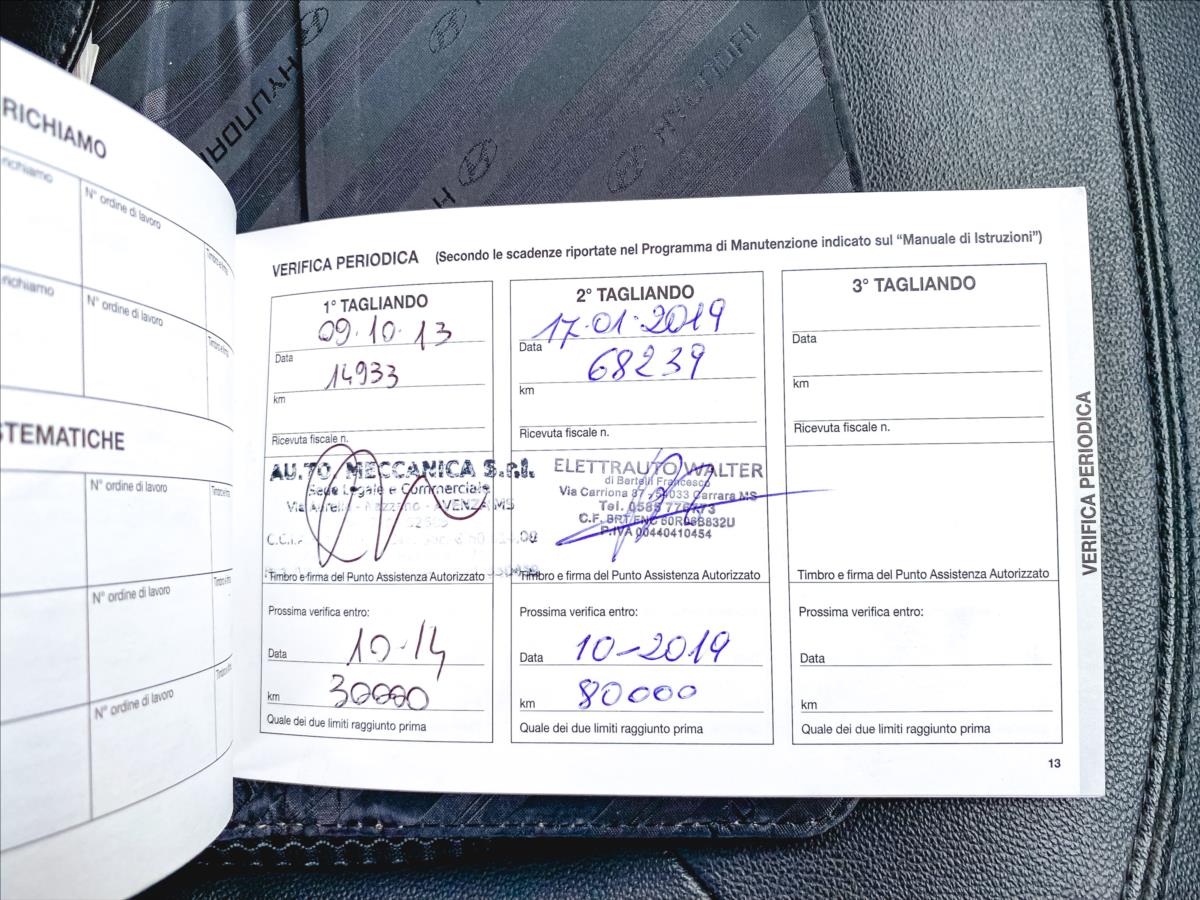 HYUNDAI
HYUNDAI
H
RICHIAMO
richiamo
N° ordine di lavoro
Timbro e firma
richiamo
N° ordine di lavoro
Timbro e firma
STEMATICHE
N° ordine di lavoro
N° ordine di lavoro
N° ordine di lavoro
VERIFICA PERIODICA (Secondo le scadenze riportate nel Programma di Manutenzione indicato sul “Manuale di Istruzioni”)
1° TAGLIANDO
09.10.13
Data
14933
km
Ricevuta fiscale n.
AU.TO MECCANICA S.r.l.
Sede Legale e Commerciale
Via Aurelia - AVENZA MS
C.C.I.
Timbro e firma del Punto Assistenza Autorizzato
Prossima verifica entro:
Data 10-14
km 30000
Quale dei due limiti raggiunto prima
2° TAGLIANDO
17.01.2019
Data
68239
km
Ricevuta fiscale n.
ELETTRAUTO WALTER
di Bertelli Francesco
Via Carriona 87 - 54033 Carrara MS
Tel. 0585
C.F. BRT FNC
P.IVA 00440410454
Timbro e firma del Punto Assistenza Autorizzato
Prossima verifica entro:
Data 10-2019
km 80000
Quale dei due limiti raggiunto prima
3° TAGLIANDO
Data
km
Ricevuta fiscale n.
Timbro e firma del Punto Assistenza Autorizzato
Prossima verifica entro:
Data
km
Quale dei due limiti raggiunto prima
VERIFICA PERIODICA
13